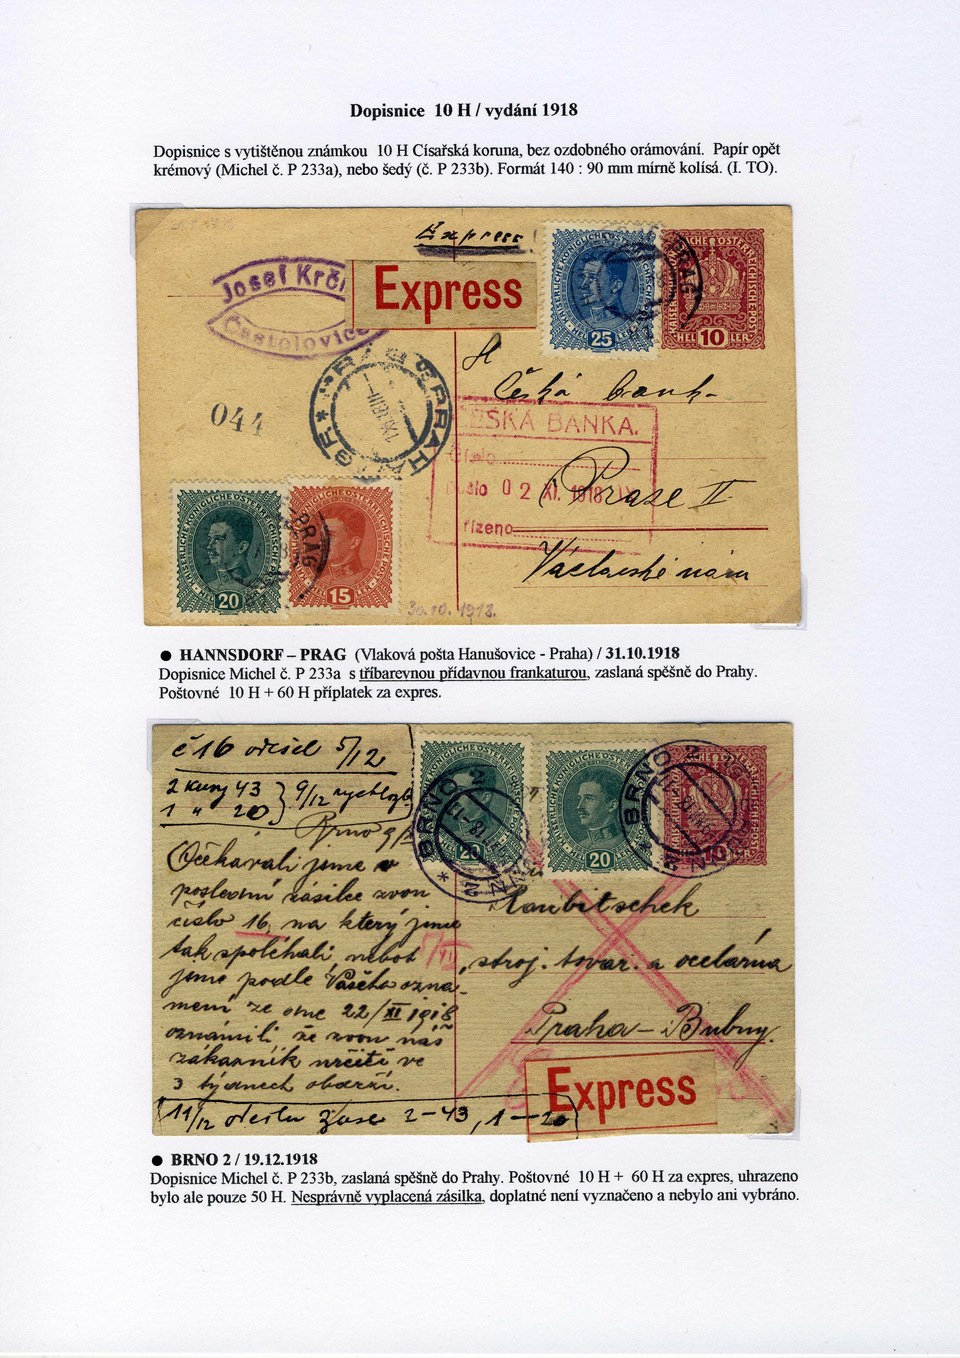 Dopisnice 10 H / vydání 1918
Dopisnice s vytištěnou známkou 10 H Císařská koruna, bez ozdobného orámování. Papír opět
krémový (Michel č. P 233a), nebo šedý (č. P 233b). Formát 140 : 90 mm mírně kolísá. (I. TO).
Express
Josef Krč
Častolovice
Express
25
HELLER
10
044
Česká bank
ČESKÁ BANKA.
Číslo
Došlo 0 2 XI. 1918
Praze II
řízeno
Václavské nám
PRAG
20
15
30.10.1918.
● HANNSDORF – PRAG (Vlaková pošta Hanušovice - Praha) / 31.10.1918
Dopisnice Michel č. P 233a s tříbarevnou přídavnou frankaturou, zaslaná spěšně do Prahy.
Poštovné 10 H + 60 H příplatek za expres.
č 16 odesel 5/12
2 kusy 43 } 9/12
1 " 20
Brno 9/
Očekávali jsme v
poslední zásilce zvon
číslo 16, na který jsme
tak spoléhali, neboť
jsme podle Vašeho ozná-
mení ze dne 22/XI 1918
oznámili, že zvon náš
zákazník určitě ve
3 týdnech obdrží.
11/12 zase 2–43, 1–20
BRNO 2
20
20
10
BRNO 2
Roubitschek
stroj. tovar. a ocelárna
Praha – Bubny.
Express
● BRNO 2 / 19.12.1918
Dopisnice Michel č. P 233b, zaslaná spěšně do Prahy. Poštovné 10 H + 60 H za expres, uhrazeno
bylo ale pouze 50 H. Nesprávně vyplacená zásilka, doplatné není vyznačeno a nebylo ani vybráno.